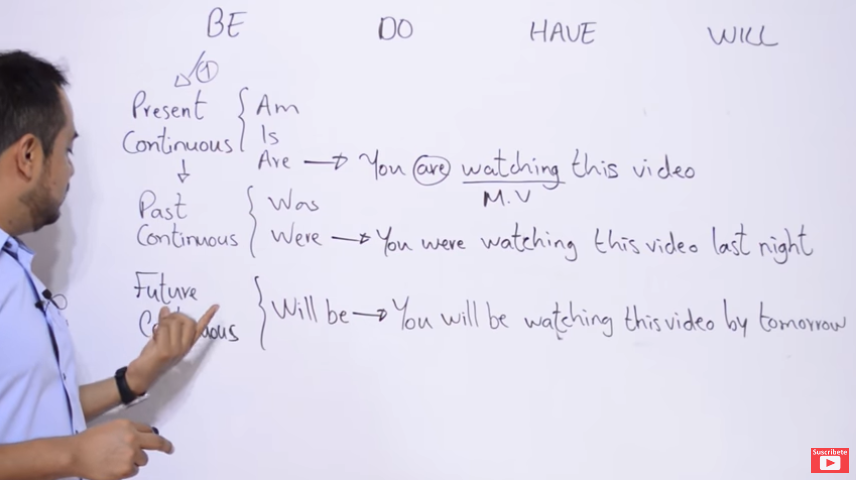 BE DO HAVE WILL
1
Present
Continuous
Am
Is
Are → You are watching this video
M.V
Past
Continuous
Was
Were → You were watching this video last night
Future
Will be → You will be watching this video by tomorrow
Suscríbete